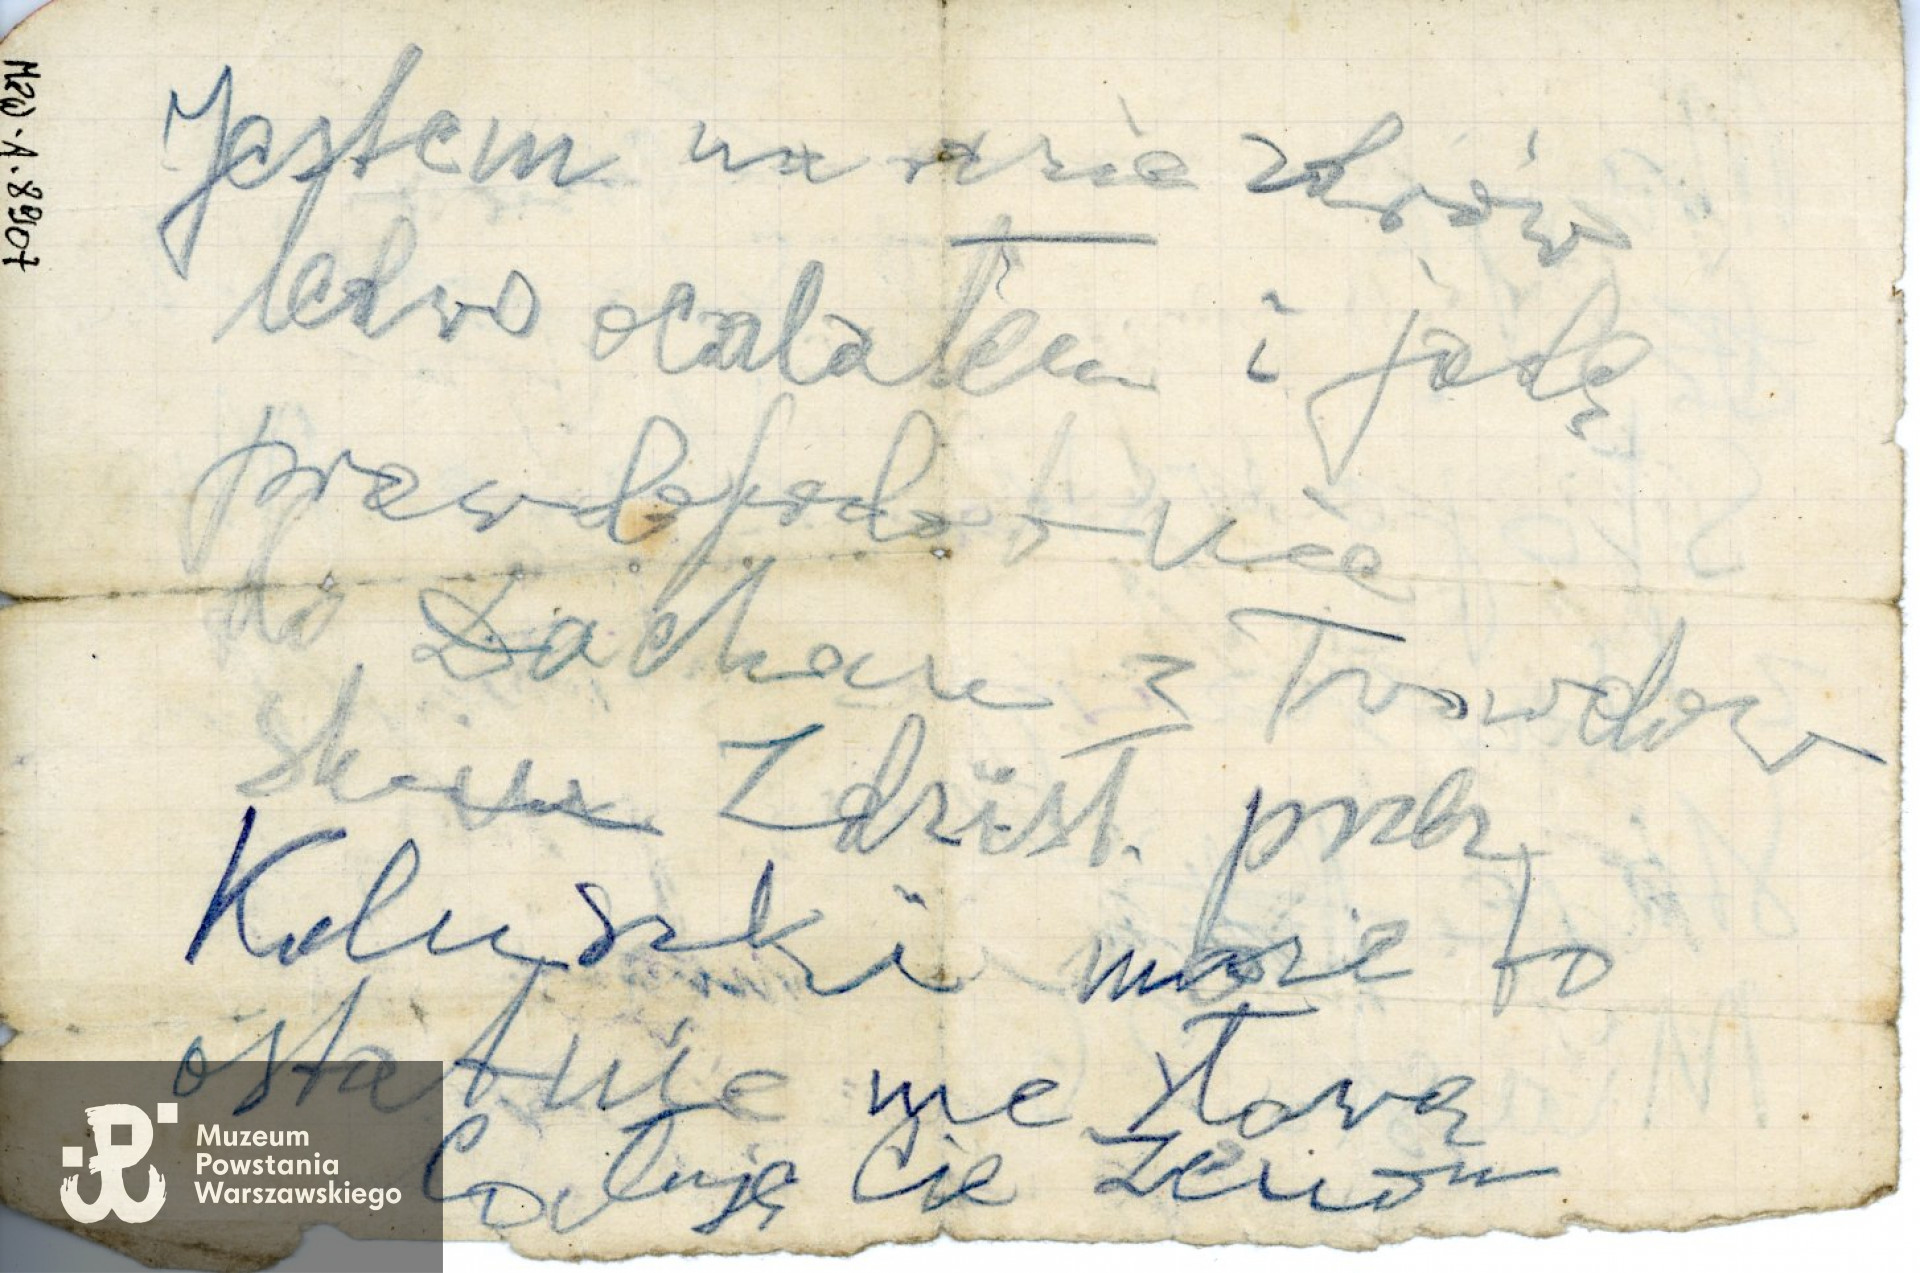 MPW-A.8907
Jestem na razie zdrów
ledwo ocalałem i jadę
prawdopodobnie
do Dachau z Twardow
skim Zdzisł. przez
Koluszki może to
ostatnie me słowa
Całuję Cię Zenon
Muzeum
Powstania
Warszawskiego